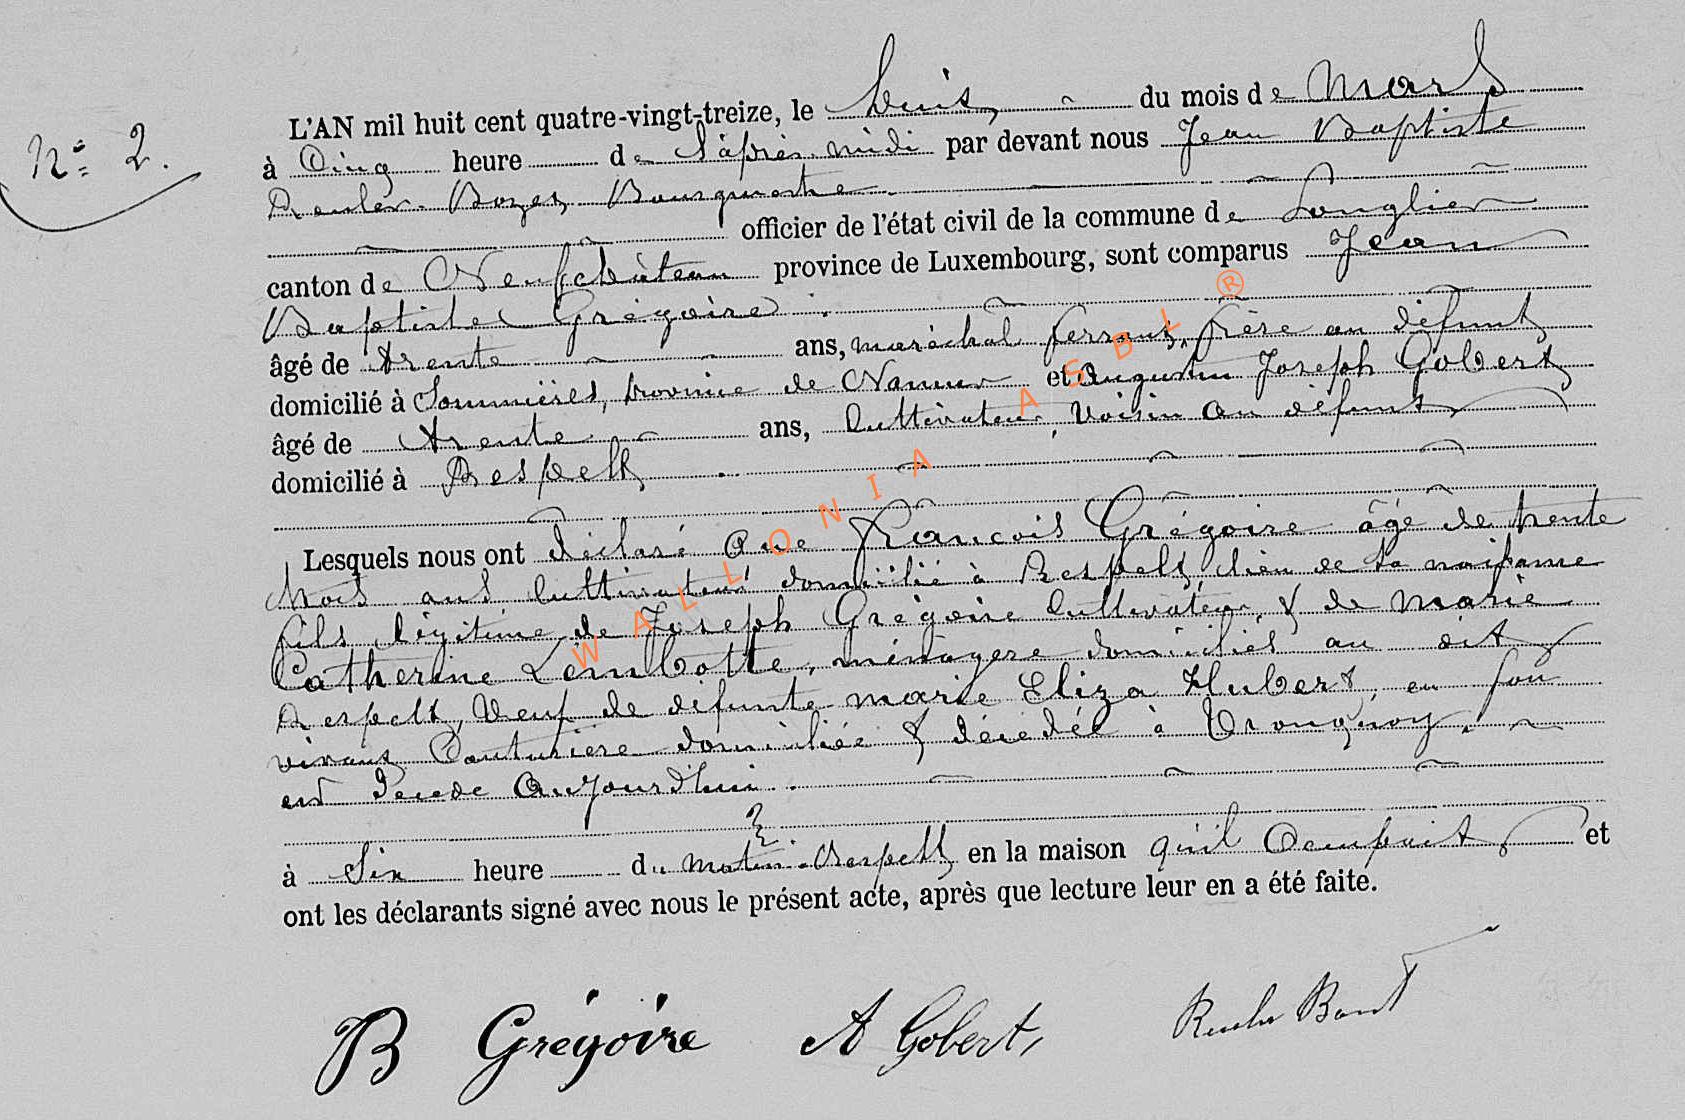 N° 2.
L'AN mil huit cent quatre-vingt-treize, le huit du mois de Mars
à Cinq heure de l'après-midi par devant nous Jean Baptiste
Reuler
officier de l'état civil de la commune de Longlier
canton de Neufchâteau province de Luxembourg, sont comparus Jean
Baptiste Grégoire
âgé de trente ans, maréchal ferrant, frère au défunt
domicilié à Sommières, province de Namur et Augustin Joseph Gobert
âgé de trente ans, Cultivateur, voisin au défunt
domicilié à Respelt
Lesquels nous ont déclaré que François Grégoire âgé de trente
trois ans Cultivateur domicilié à Respelt, lieu de sa naissance
fils légitime de Joseph Grégoire Cultivateur & de Marie
Catherine Lembotte, ménagère domiciliés au dit
Respelt, Veuf de défunte marie Eliza Hubert, en son
vivant Couturière domiciliée & décédée à Tronquoy.
est décédé Aujourd'hui
à Six heure du matin à Respelt en la maison qu'il Occupait et
ont les déclarants signé avec nous le présent acte, après que lecture leur en a été faite.
B Grégoire A Gobert,
WALLONIA ASBL ®